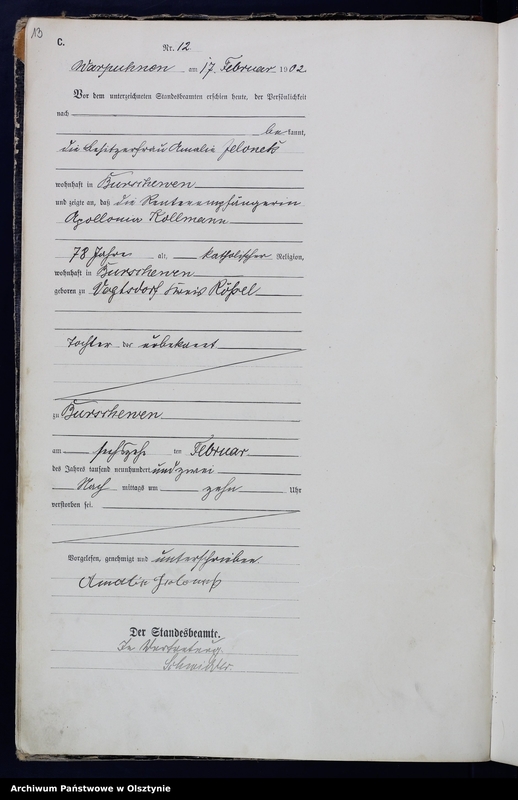 13
C.
Nr. 12
Warpuhnen am 17. Februar 1902
Vor dem unterzeichneten Standesbeamten erschien heute, der Persönlichkeit
nach
be kannt,
die Besitzerfrau Amalie Jelonek
wohnhaft in Burschewen
und zeigte an, daß die Rentenempfängerin
Apollonia Kollmann
73 Jahre alt, katholischer Religion,
wohnhaft in Burschewen
geboren zu Vogtsdorf Kreis Rößel
Tochter der unbekannt
zu Burschewen
am sechszehn ten Februar
des Jahres tausend neunhundert und zwei
Nach mittags um zehn Uhr
verstorben sei.
Vorgelesen, genehmigt und unterschrieben
Amalie Jelonek
Der Standesbeamte.
In Vertretung
Archiwum Państwowe w Olsztynie